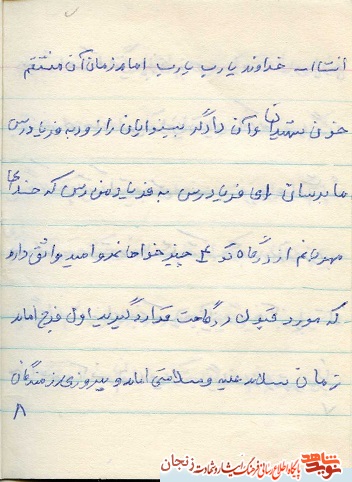 انشاا... خداوند یا رب یا رب امام زمان آن منتقم
خون شهیدان و آن دادگر بینوایان را زود به فریادرس
ما برسان ای فریادرس به فریاد من رس که خدای
مهربانم از درگاه تو ۴ چیز خواهانم و امید واثق دارم
که مورد قبول درگاهت قرار گیرید اول فرج امام
زمان سلام علیه و سلامتی امام و پیروزی رزمندگان
۸
نوید شاهد
پایگاه اطلاع رسانی فرهنگ ایثار و شهادت زنجان